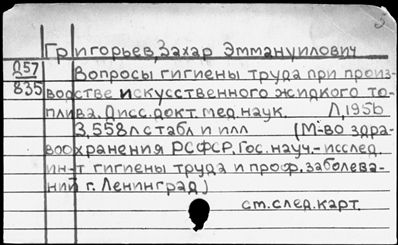 Григорьев, Захар Эммануилович
Д57
835
Вопросы гигиены труда при произ-
водстве искусственного жидкого то-
плива. Дисс. докт. мед. наук. Л, 1956
3, 558 л с табл и илл (М-во здра-
воохранения РСФСР. Гос. науч.-исслед.
ин-т гигиены труда и проф. заболева-
ний г. Ленинград)
см. след. карт.